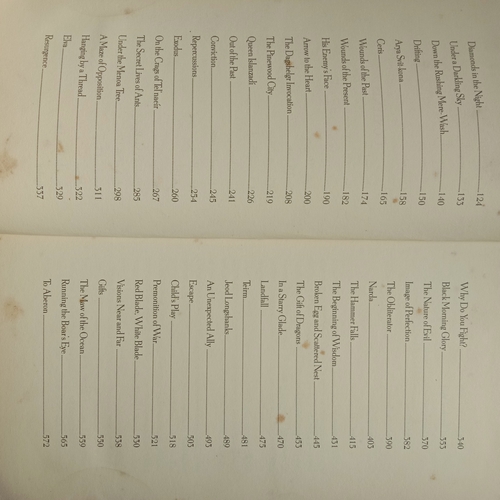 Diamonds in the Night 124
Under a Darkling Sky 133
Down the Rushing Mere-Wash 140
Drifting 150
Arya Svit-kona 158
Ceris 165
Wounds of the Past 174
Wounds of the Present 182
His Enemy's Face 190
Arrow to the Heart 200
The Dagshelgr Invocation 208
The Pinewood City 219
Queen Islanzadí 226
Out of the Past 241
Conviction 245
Repercussions 254
Exodus 260
On the Crags of Tel'naeír 267
The Secret Lives of Ants 285
Under the Menoa Tree 298
A Maze of Opposition 311
Hanging by a Thread 322
Elva 329
Resurgence 337
Why Do You Fight? 340
Black Morning Glory 353
The Nature of Evil 370
Image of Perfection 382
The Obliterator 390
Narda 403
The Hammer Falls 415
The Beginning of Wisdom 431
Broken Egg and Scattered Nest 445
The Gift of Dragons 453
In a Starry Glade 470
Landfall 475
Teirm 481
Jeod Longshanks 489
An Unexpected Ally 495
Escape 505
Child's Play 518
Premonition of War 521
Red Blade, White Blade 530
Visions Near and Far 538
Gifts 550
The Maw of the Ocean 559
Running the Boar's Eye 565
To Aberon 572